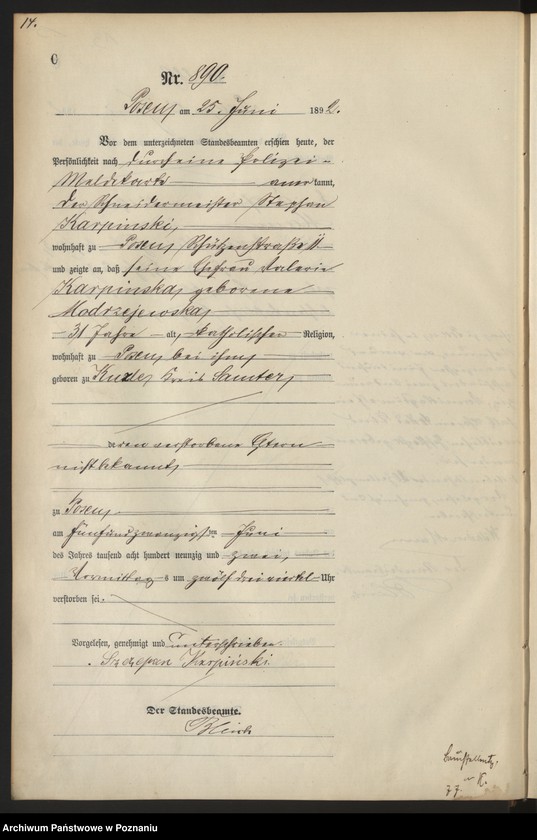 14.
0
Nr. 890.
Posen, am 25. Juni 1892.
Vor dem unterzeichneten Standesbeamten erschien heute, der
Persönlichkeit nach durch eine Polizei-
Meldekarte anerkannt,
der Schneidermeister Stephan
Karpinski,
wohnhaft zu Posen, Schützenstraße
und zeigte an, daß seine Ehefrau Valerie
Karpinska, geborene
Modrzejewska,
31 Jahre alt, katholischer Religion,
wohnhaft zu Posen bei ihm,
geboren zu Kreis Samter,
deren verstorbene Eltern
nicht bekannt,
zu Posen,
am fünfundzwanzigsten Juni
des Jahres tausend acht hundert neunzig und zwei,
Vormittags um zwölf dreiviertel Uhr
verstorben sei.
Vorgelesen, genehmigt und unterschrieben.
Szczepan Karpiński
Der Standesbeamte.
Archiwum Państwowe w Poznaniu